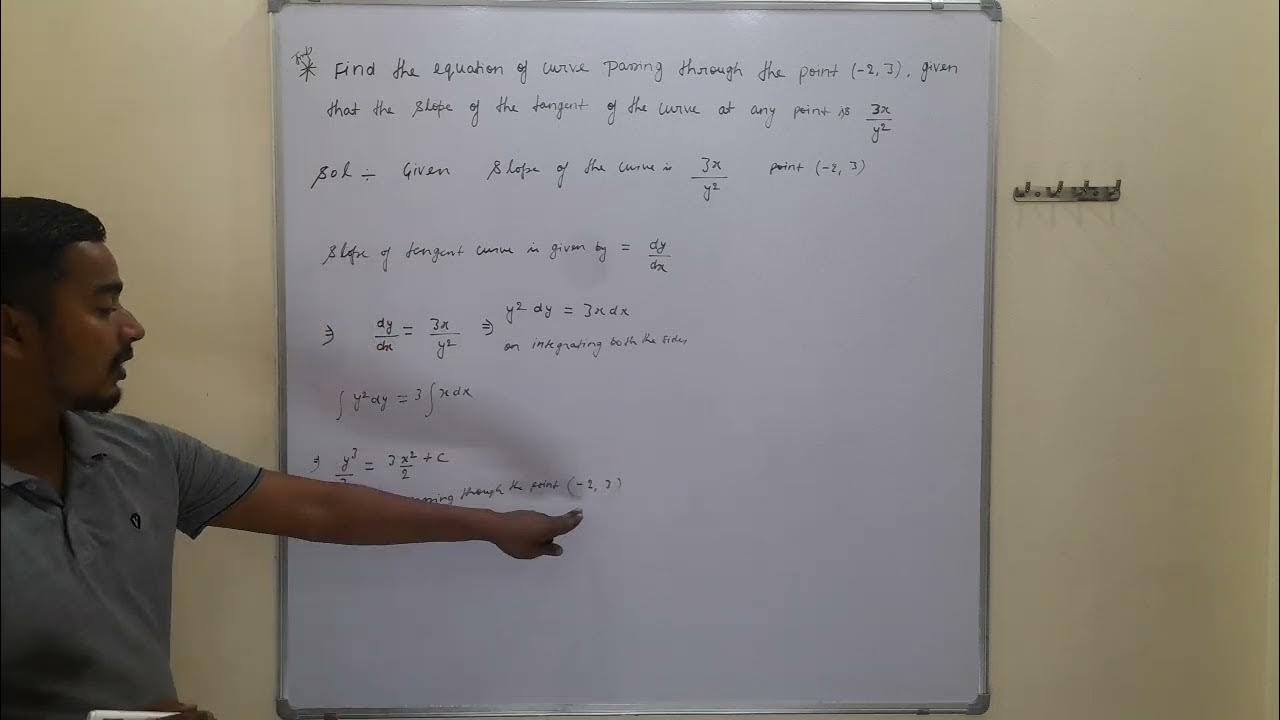 * Find the equation of curve passing through the point (-2, 3), given
that the slope of the tangent of the curve at any point is 3x/y²
Sol ÷ Given slope of the curve is 3x/y² point (-2, 3)
slope of tangent curve is given by = dy/dx
⇒ dy/dx = 3x/y² ⇒ y² dy = 3x dx
on integrating both the sides
∫ y² dy = 3 ∫ x dx
⇒ y³/3 = 3 x²/2 + c
passing through the point (-2, 3)